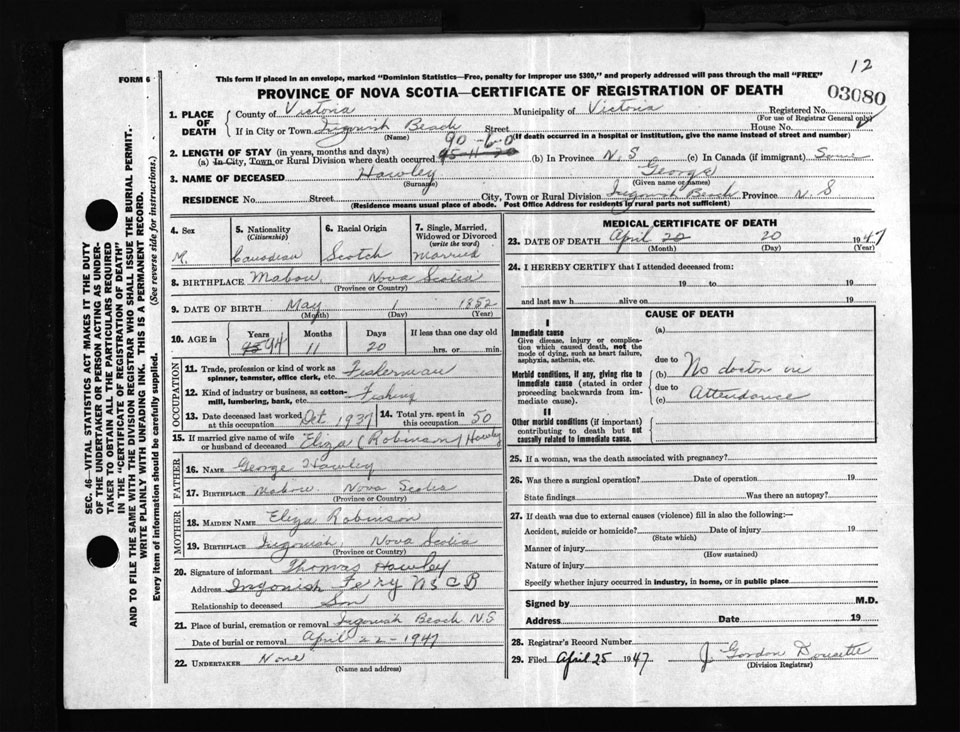 12
FORM 6
This form if placed in an envelope, marked "Dominion Statistics—Free, penalty for improper use $300," and properly addressed will pass through the mail "FREE"
PROVINCE OF NOVA SCOTIA—CERTIFICATE OF REGISTRATION OF DEATH
03080
1. PLACE OF DEATH
County of Victoria Municipality of Victoria Registered No.
(For use of Registrar General only)
If in City or Town Ingonish Beach Street House No.
(Name) (If death occurred in a hospital or institution, give the name instead of street and number)
90-6-0
2. LENGTH OF STAY (in years, months and days)
(a) In City, Town or Rural Division where death occurred 95-11-20 (b) In Province N.S (c) In Canada (if immigrant) Same
3. NAME OF DECEASED Hawley George
(Surname) (Given name or names)
RESIDENCE No. Street City, Town or Rural Division Ingonish Beach Province N.S
(Residence means usual place of abode. Post Office Address for residents in rural parts not sufficient)
4. Sex
M.
5. Nationality
(Citizenship)
Canadian
6. Racial Origin
Scotch
7. Single, Married, Widowed or Divorced
(write the word)
Married
8. BIRTHPLACE Mabou. Nova Scotia
(Province or Country)
9. DATE OF BIRTH May 1 1852
(Month) (Day) (Year)
10. AGE in
Years Months Days If less than one day old
95 94 11 20 hrs. or min.
OCCUPATION
11. Trade, profession or kind of work as spinner, teamster, office clerk, etc. Fisherman
12. Kind of industry or business, as cotton-mill, lumbering, bank, etc. Fishing
13. Date deceased last worked at this occupation Oct 1937
14. Total yrs. spent in this occupation 50
15. If married give name of wife or husband of deceased Eliza (Robinson) Hawley
FATHER
16. NAME George Hawley
17. BIRTHPLACE Mabou. Nova Scotia
(Province or Country)
MOTHER
18. MAIDEN NAME Eliza Robinson
19. BIRTHPLACE Ingonish. Nova Scotia
(Province or Country)
20. Signature of informant Thomas Hawley
Address Ingonish Ferry N S C B
Relationship to deceased Son
21. Place of burial, cremation or removal Ingonish Beach N.S
Date of burial or removal April 22-1947
22. UNDERTAKER None
(Name and address)
MEDICAL CERTIFICATE OF DEATH
23. DATE OF DEATH April 20 20 1947
(Month) (Day) (Year)
24. I HEREBY CERTIFY that I attended deceased from:
19 to 19
and last saw h alive on 19
CAUSE OF DEATH
I
Immediate cause (a)
Give disease, injury or complication which caused death, not the mode of dying, such as heart failure, asphyxia, asthenia, etc.
due to
Morbid conditions, if any, giving rise to immediate cause (stated in order proceeding backwards from immediate cause).
(b) No doctor in
due to
(c) Attendance
II
Other morbid conditions (if important) contributing to death but not causally related to immediate cause.
25. If a woman, was the death associated with pregnancy?
26. Was there a surgical operation? Date of operation 19
State findings Was there an autopsy?
27. If death was due to external causes (violence) fill in also the following:—
Accident, suicide or homicide? Date of injury 19
(State which)
Manner of injury
(How sustained)
Nature of injury
Specify whether injury occurred in industry, in home, or in public place
Signed by M.D.
Address Date 19
28. Registrar's Record Number
29. Filed April 25 1947 J Gordon Doucette
(Division Registrar)
SEC. 46—VITAL STATISTICS ACT MAKES IT THE DUTY
OF THE UNDERTAKER OR PERSON ACTING AS UNDER-
TAKER TO OBTAIN ALL THE PARTICULARS REQUIRED
IN THE "CERTIFICATE OF REGISTRATION OF DEATH"
AND TO FILE THE SAME WITH THE DIVISION REGISTRAR WHO SHALL ISSUE THE BURIAL PERMIT.
WRITE PLAINLY WITH UNFADING INK. THIS IS A PERMANENT RECORD.
Every item of information should be carefully supplied. (See reverse side for instructions.)